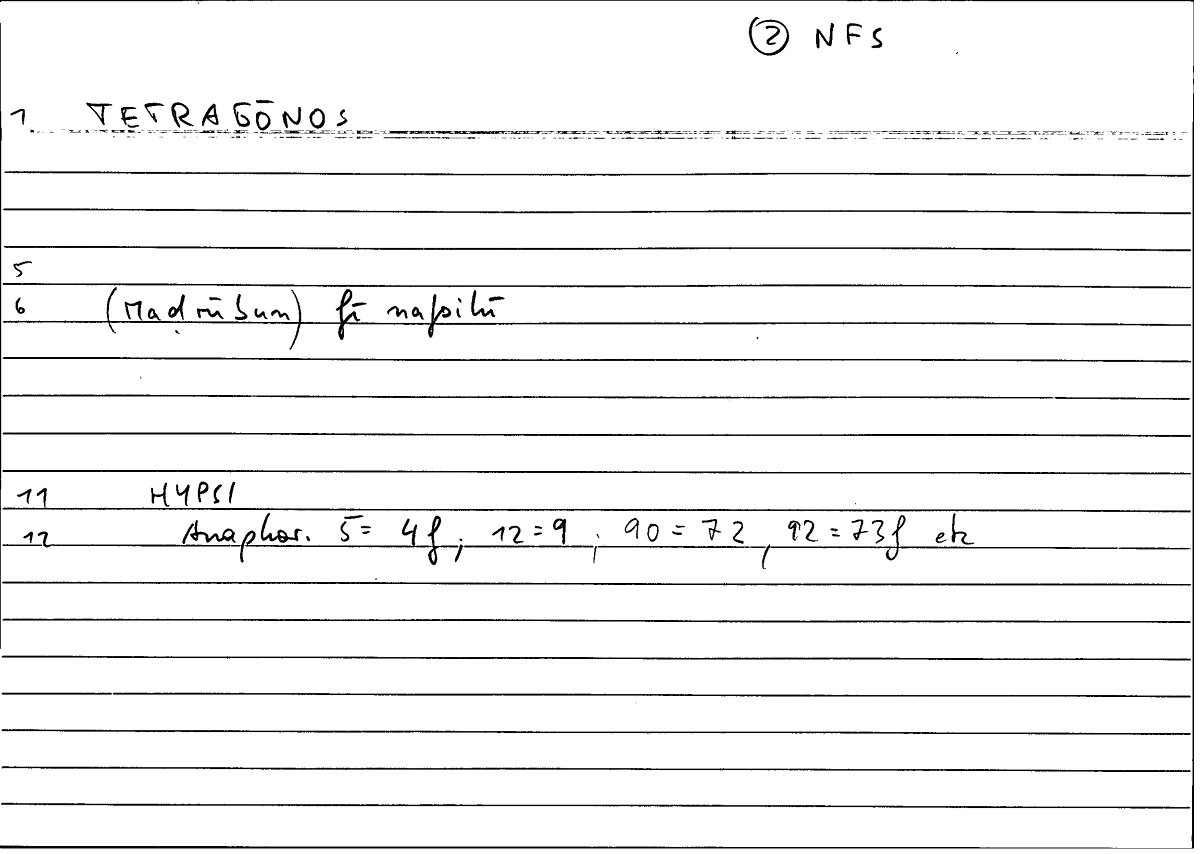 ② NFS
1 TETRAGŌNOS
5
6 (Maḍrūbun) fī nafsihī
11 HYPSI
12 Anaphor. 5 = 4f; 12 = 9; 90 = 72, 92 = 73f etc